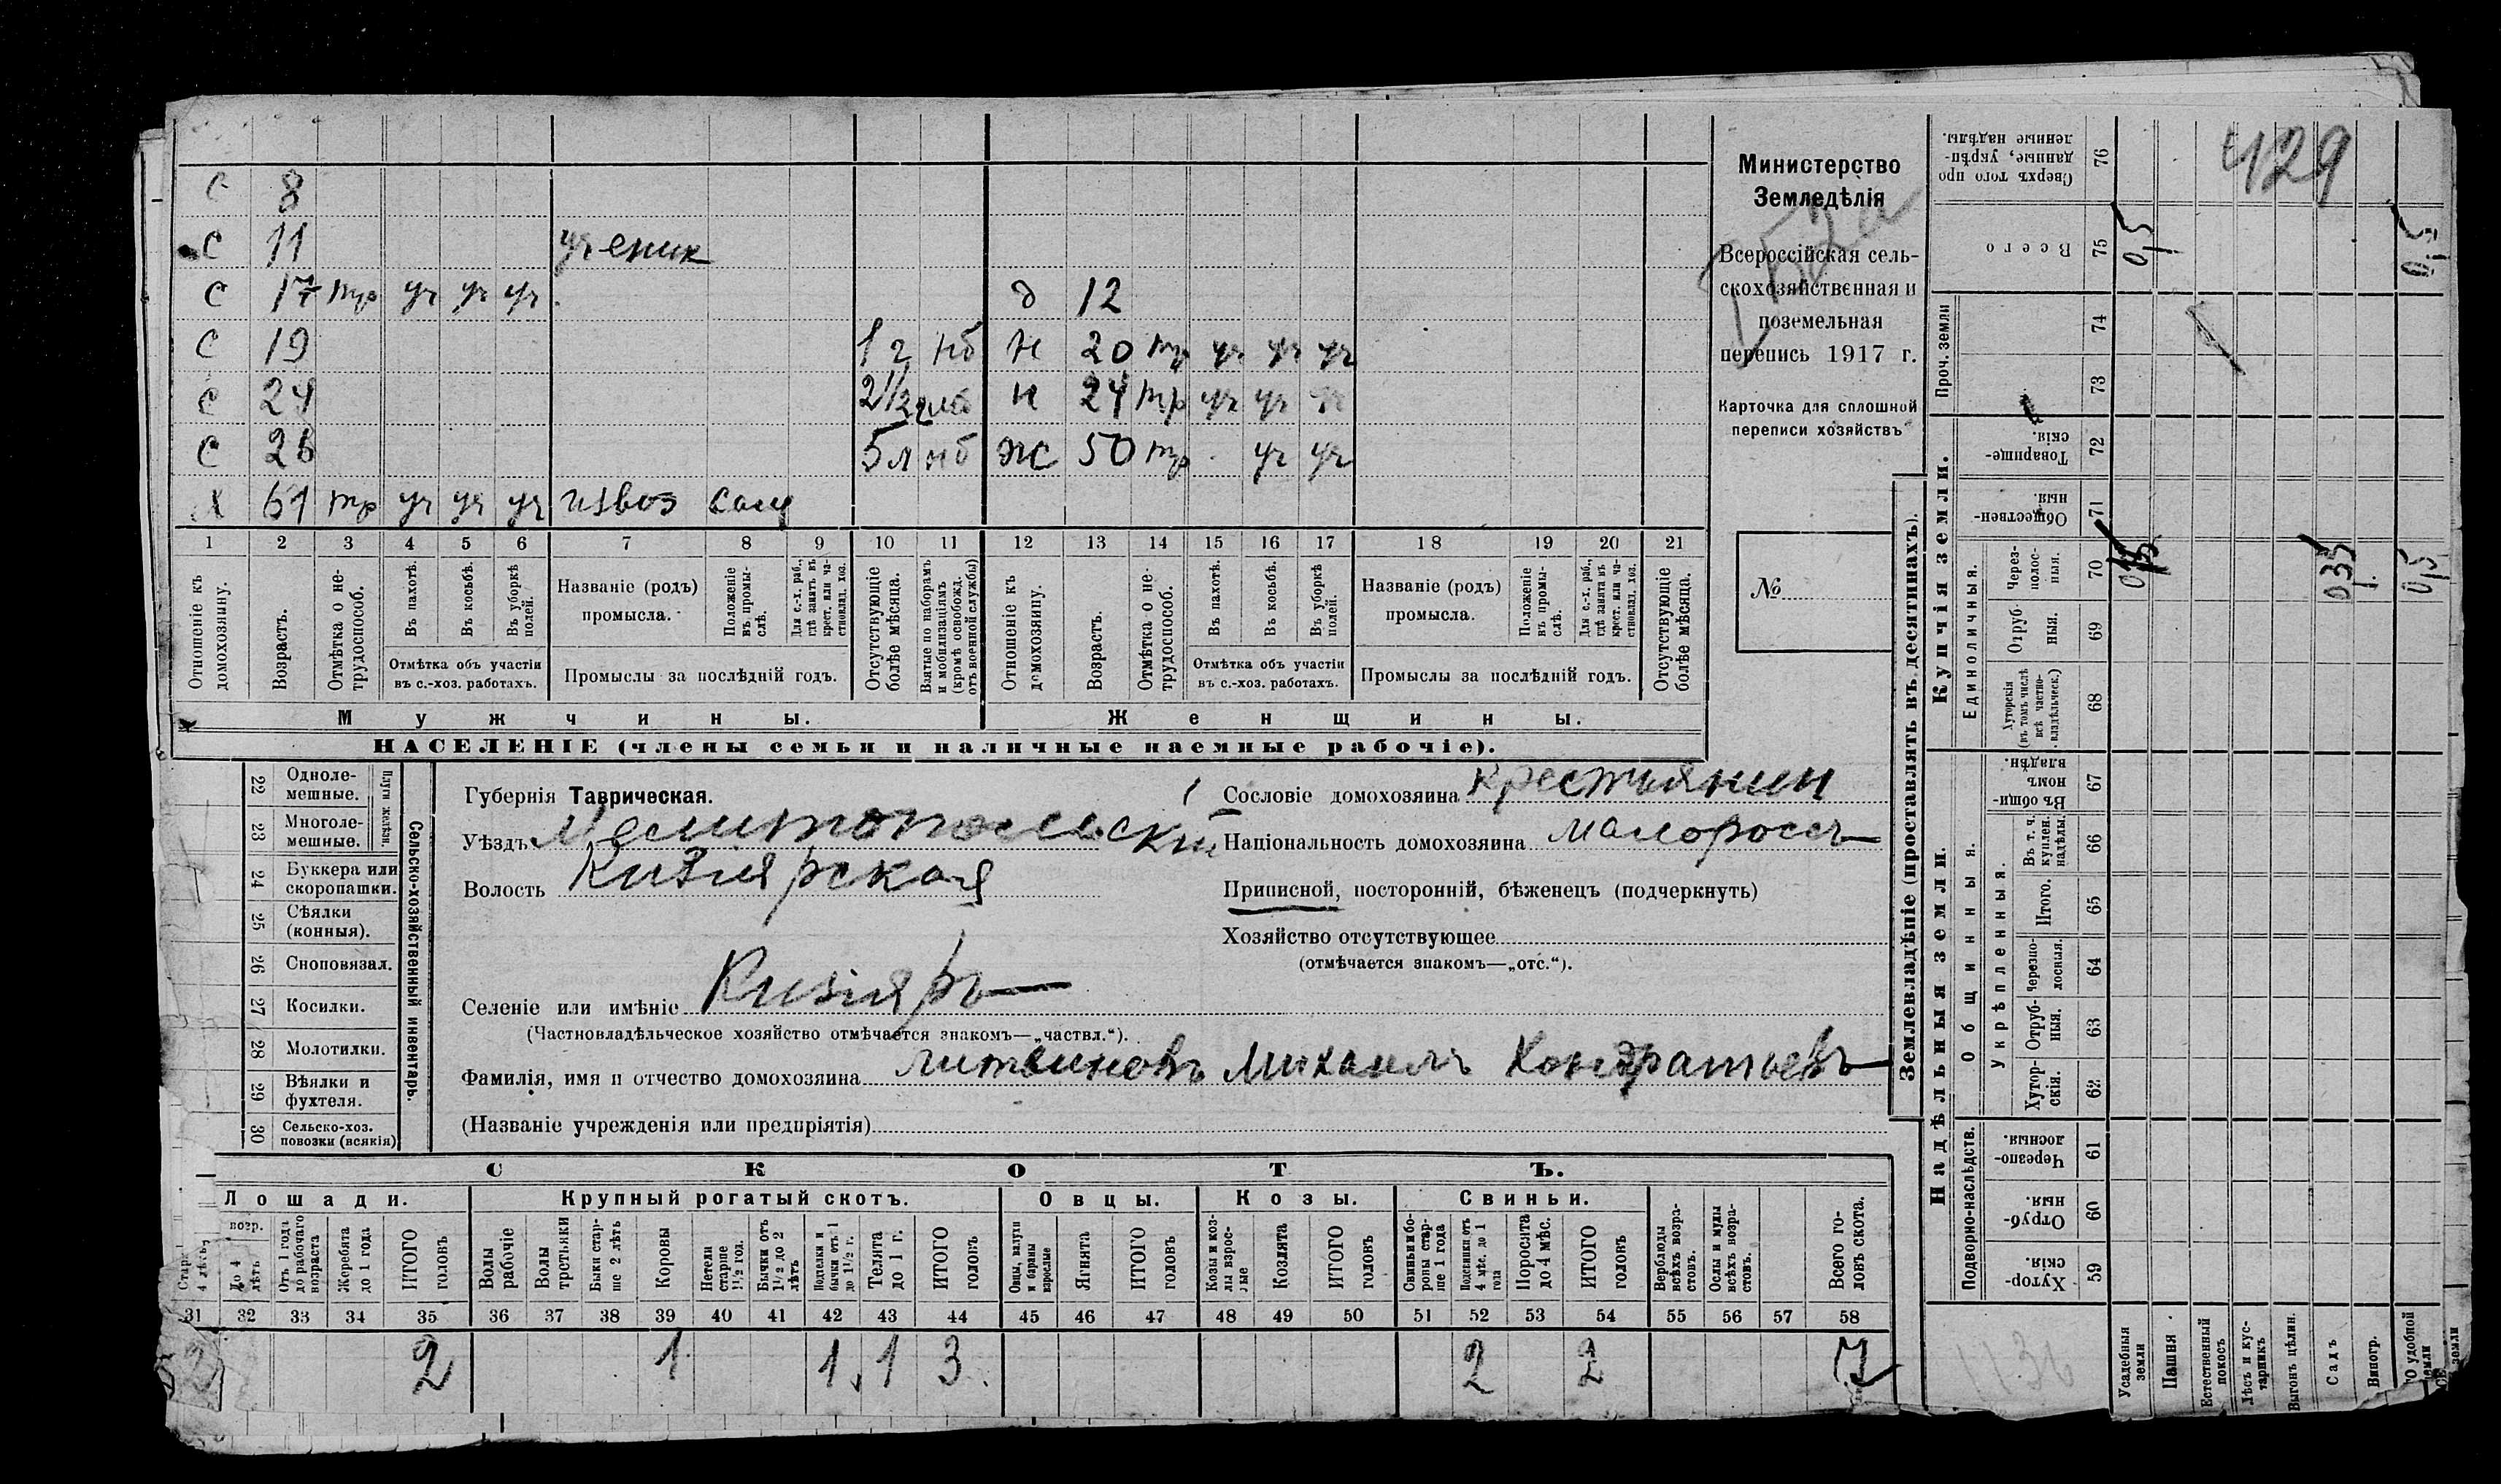 С 8
С 11 ученик
С 17 тр уч уч уч д 12
С 19 1 г нб Н 20 тр уч уч уч
С 24 2 1/2 г нб Н 24 тр уч уч уч
С 26 5 л нб Ж 50 тр уч уч
Х 61 тр уч уч уч извоз сам
1 2 3 4 5 6 7 8 9 10 11 12 13 14 15 16 17 18 19 20 21
Отношеніе къ домохозяину.
Возрастъ.
Отмѣтка о не-трудоспособ.
Въ пахотѣ.
Въ косьбѣ.
Въ уборкѣ полей.
Отмѣтка объ участіи въ с.-хоз. работахъ.
Названіе (родъ) промысла.
Положеніе въ промы-слѣ.
Для с.-х. раб., гдѣ занятъ въ крест. или ча-стновлад. хоз.
Промыслы за послѣдній годъ.
Отсутствующіе болѣе мѣсяца.
Взятые по наборамъ и мобилизаціямъ (кромѣ освобожд. отъ военной службы)
Отношеніе къ домохозяину.
Возрастъ.
Отмѣтка о не-трудоспособ.
Въ пахотѣ.
Въ косьбѣ.
Въ уборкѣ полей.
Отмѣтка объ участіи въ с.-хоз. работахъ.
Названіе (родъ) промысла.
Положеніе въ промы-слѣ.
Для с.-х. раб., гдѣ занятъ въ крест. или ча-стновлад. хоз.
Промыслы за послѣдній годъ.
Отсутствующіе болѣе мѣсяца.
Мужчины.
Женщины.
НАСЕЛЕНІЕ (члены семьи и наличные наемные рабочіе).
Министерство
Земледѣлія
Всероссійская сель-
скохозяйственная и
поземельная
перепись 1917 г.
Карточка для сплошной
переписи хозяйствъ
№
22 Одноле-мешные.
23 Многоле-мешные.
Плуги желѣзн.
24 Буккера или скоропашки.
25 Сѣялки (конныя).
26 Сноповязал.
27 Косилки.
28 Молотилки.
29 Вѣялки и фухтеля.
30 Сельско-хоз. повозки (всякія)
Сельско-хозяйственный инвентарь.
Губернія Таврическая.
Уѣздъ Мелитопольскій
Волость Кизиярская
Селеніе или имѣніе Кизияръ
(Частновладѣльческое хозяйство отмѣчается знакомъ—„частвл.“).
Фамилія, имя и отчество домохозяина Литвиновъ Михаилъ Кондратьевъ
(Названіе учрежденія или предпріятія)
Сословіе домохозяина крестьянин
Національность домохозяина малороссъ
Приписной, посторонній, бѣженецъ (подчеркнуть)
Хозяйство отсутствующее
(отмѣчается знакомъ—„отс.“).
СКОТЪ.
Лошади. Крупный рогатый скотъ. Овцы. Козы. Свиньи.
До 4 лѣтъ
Отъ 1 года до рабочаго возраста
Жеребята до 1 года
ИТОГО головъ
Волы рабочіе
Волы третьяки
Быки стар-ше 2 лѣтъ
Коровы
Нетели старше 1 1/2 год.
Бычки отъ 1 1/2 до 2 лѣтъ
Подтелки и бычки отъ 1 до 1 1/2 г.
Телята до 1 г.
ИТОГО головъ
Овцы, валухи и бараны взрослые
Ягнята
ИТОГО головъ
Козы и коз-лы взрос-лые
Козлята
ИТОГО головъ
Свиньи и бо-ровы стар-ше 1 года
Подсвинки отъ 4 мѣс. до 1 года
Поросята до 4 мѣс.
ИТОГО головъ
Верблюды всѣхъ возра-стовъ.
Ослы и мулы всѣхъ возра-стовъ.
Всего го-ловъ скота.
31 32 33 34 35 36 37 38 39 40 41 42 43 44 45 46 47 48 49 50 51 52 53 54 55 56 57 58
2 2 1 1 1 3 2 2 7
Землевладѣніе (проставлять въ десятинахъ).
Надѣльныя земли.
Купчія земли.
Проч. земли
Подворно-наслѣдств.
Общинныя.
Укрѣпленныя.
Единоличныя.
Хутор-скія. 59
Отруб-ныя. 60
Черезпо-лосныя. 61
Хутор-скія. 62
Отруб-ныя. 63
Черезпо-лосныя. 64
Итого. 65
Въ т. ч. куплен. надѣлы. 66
Въ общи-номъ владѣн. 67
Хуторскія (въ томъ числѣ всѣ частно-владѣльческ.) 68
Отруб-ныя. 69
Через-полос-ныя. 70
Обществен-ныя. 71
Товарище-скія. 72
73
74
Всего 75
Сверхъ того про-данные, укрѣп-ленные надѣлы. 76
Усадебныя земли
Пашня
Естественный покосъ
Лѣсъ и кус-тарникъ
Выгонъ цѣлин.
Садъ
Виногр.
удобной земли
429
0,5
0,5
035
0,5
1136